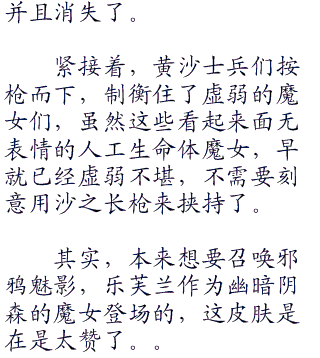 并且消失了。
紧接着，黄沙士兵们按
枪而下，制衡住了虚弱的魔
女们，虽然这些看起来面无
表情的人工生命体魔女，早
就已经虚弱不堪，不需要刻
意用沙之长枪来挟持了。
其实，本来想要召唤邪
鸦魅影，乐芙兰作为幽暗阴
森的魔女登场的，这皮肤是
在是太赞了。。